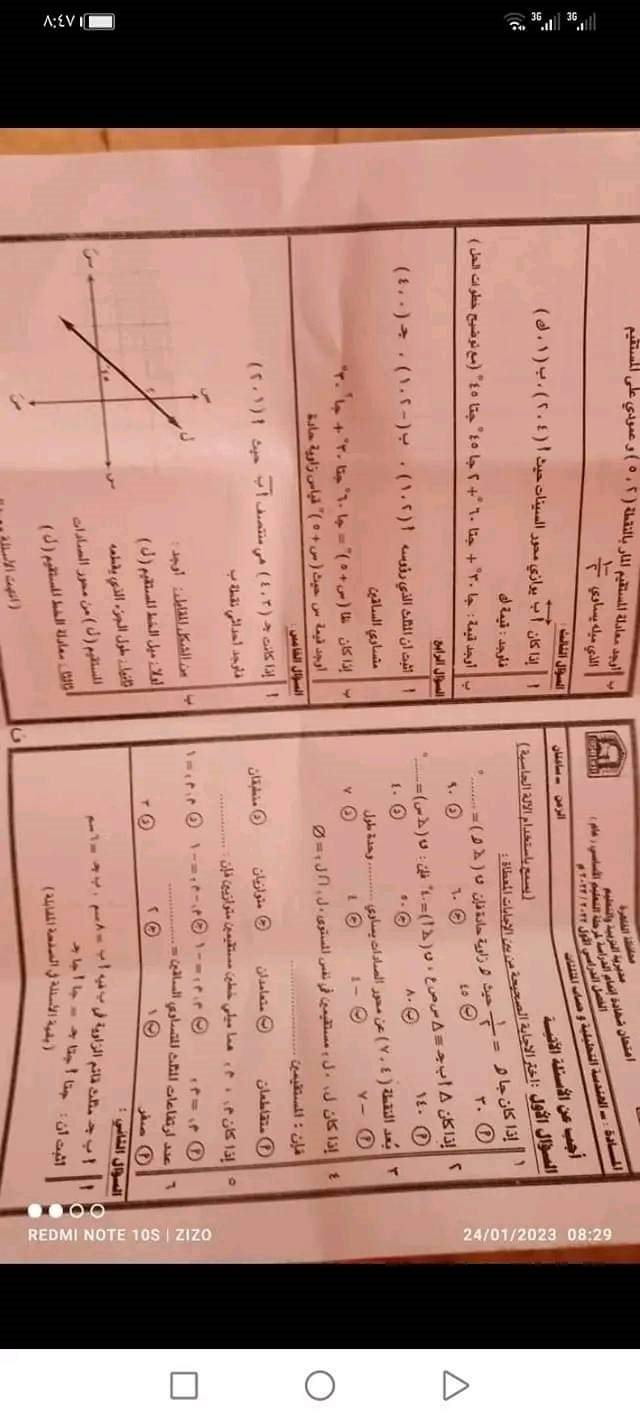 ٨:٤٧
3G 3G
محافظة القاهرة
مديرية التربية والتعليم
امتحان شهادة إتمام الدراسة لمرحلة التعليم الأساسي (عام)
الفصل الدراسي الأول ٢٠٢٢ / ٢٠٢٣ م
المادة : - الهندسة التحليلية وحساب المثلثات
الزمن : - ساعتان
أجب عن الأسئلة الآتية
(يسمح باستخدام الآلة الحاسبة)
السؤال الأول : اختر الإجابة الصحيحة من بين الإجابات المعطاة :
١ إذا كان جا ھ = ١/٢ حيث ھ زاوية حادة فإن ق (∠ ھ) = .......... °
أ ٣٠ ب ٤٥ ج ٦٠ د ٩٠
٢ إذا كان Δ أ ب جـ ≡ Δ س ص ع ، ق (∠ أ) = ٤٠° فإن : ق (∠ س) = ........ °
أ ١٤٠ ب ٨٠ ج ٥٠ د ٤٠
٣ بعد النقطة (٤ ، ٧) عن محور الصادات يساوي .......... وحدة طول
أ - ٧ ب - ٤ ج ٤ د ٧
٤ إذا كان ل١ ، ل٢ مستقيمين في نفس المستوى ، ل١ ∩ ل٢ = ∅
فإن : المستقيمين ....................
أ متقاطعان ب متعامدان ج متوازيان د منطبقان
٥ إذا كان م١ ، م٢ هما ميلي خطين مستقيمين متوازيين فإن : ............
أ م١ = م٢ ب م١ م٢ = - ١ ج م١ - م٢ = - ١ د م١ م٢ = ١
٦ عدد ارتفاعات المثلث المتساوي الساقين = ....................
أ صفر ب ١ ج ٢ د ٣
السؤال الثاني :
أ أ ب جـ مثلث قائم الزاوية في ب فيه أ ب = ٨ سم ، ب جـ = ٦ سم
اثبت أن : جتا أ جتا جـ = جا أ جا جـ
(بقية الأسئلة في الصفحة المقابلة)
ب أوجد معادلة المستقيم المار بالنقطة (٢ ، ٥) و عمودي على المستقيم
الذي ميله يساوي
السؤال الثالث :
أ إذا كان أ ب يوازي محور السينات حيث أ (٤ ، ٢) ، ب (١ ، ك)
فأوجد : قيمة ك
ب أوجد قيمة : جا ٣٠° + جتا ٦٠° + ٢ جا ٤٥° جتا ٤٥° (مع توضيح خطوات الحل)
السؤال الرابع
أ اثبت أن المثلث الذي رؤوسه أ (٢ ، ١) ، ب (-٢ ، ١) ، جـ (٠ ، ٤)
متساوي الساقين
ب إذا كان ظا (س + ٥)° = جا ٦٠° جتا ٣٠° + جا٢ ٣٠°
أوجد قيمة س حيث (س + ٥)° قياس زاوية حادة
السؤال الخامس :
أ إذا كانت جـ (٣ ، ٤) هي منتصف أ ب حيث أ (١ ، ٢)
فأوجد إحداثي نقطة ب
ب من الشكل المقابل : أوجد :
أولاً : ميل الخط المستقيم (ل)
ثانياً : طول الجزء الذي يقطعه
المستقيم (ل) من محور الصادات
ثالثاً : معادلة الخط المستقيم (ل)
(انتهت الأسئلة
REDMI NOTE 10S | ZIZO
24/01/2023 08:29